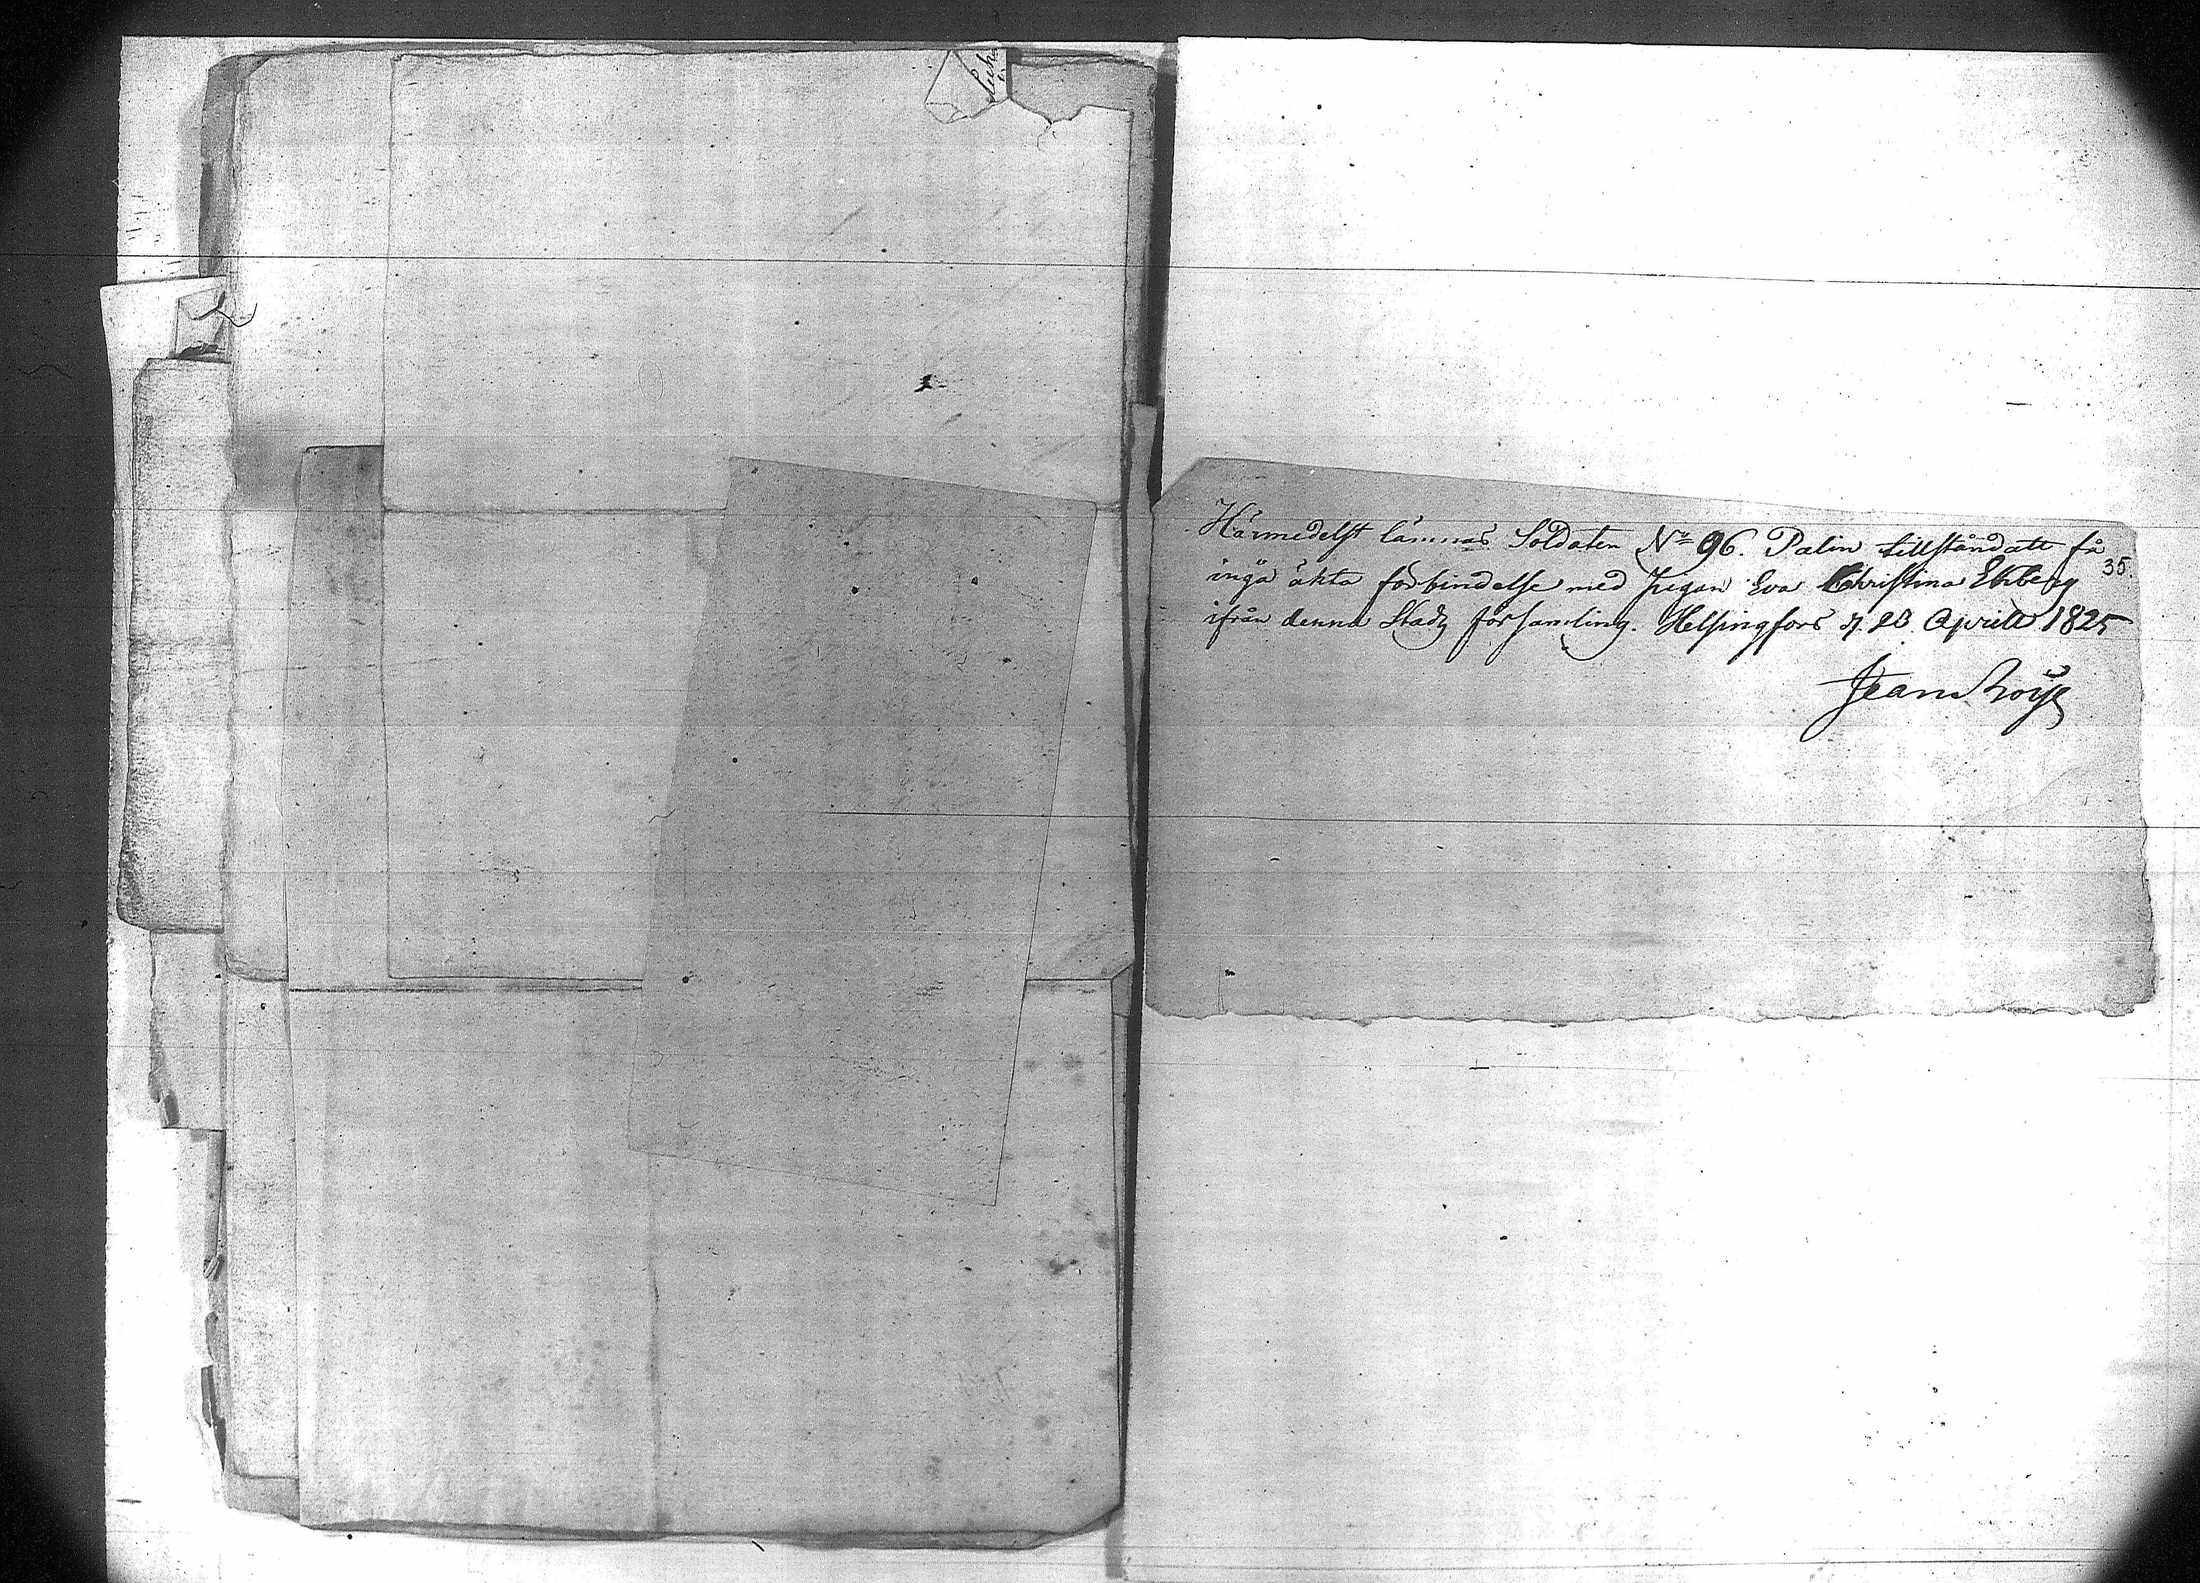 Härmedelst lämnas Soldaten No 96. Palin tillstånd att få
35.
ingå äkta förbindelse med Pigan Eva Christina Ekberg
ifrån denna Stads församling. Helsingfors d. 23 Aprill 1825
Jean